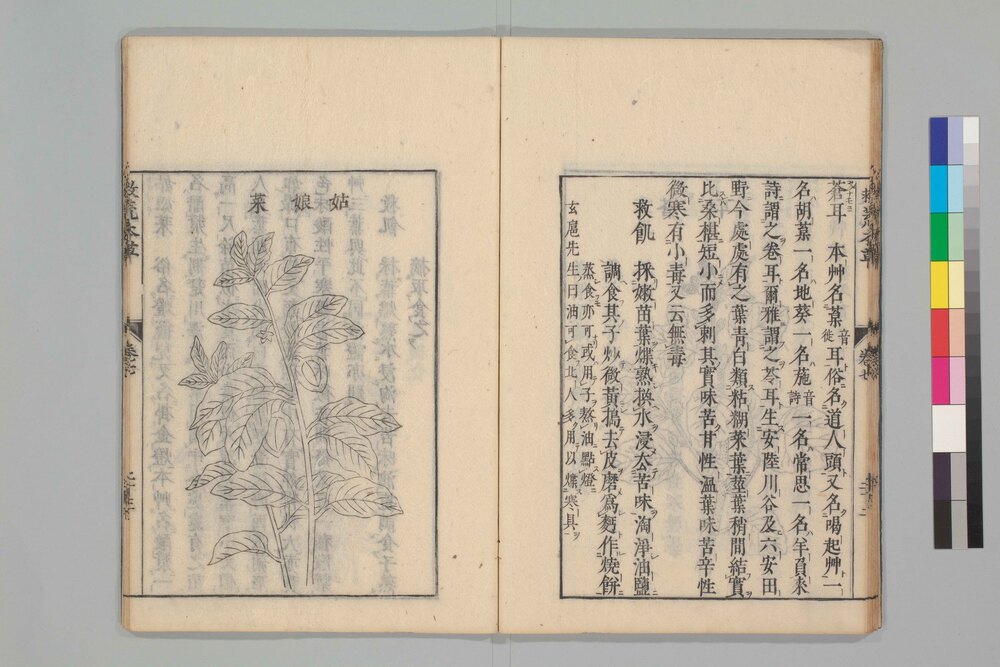 蒼耳 本艸名葈音徙耳俗名道人頭又名喝起艸一
名胡葈一名地葵一名葹音詩一名常思一名羊負来
詩謂之卷耳爾雅謂之苓耳生安陸川谷及六安田
野今處處有之葉青白類粘糊菜葉莖葉稍間結實
比桑椹短小而多刺其實味苦甘性温葉味苦辛性
微寒有小毒又云無毒
救飢 採嫩苗葉煠熟換水浸去苦味淘淨油鹽
調食其子炒微黄搗去皮磨爲麪作燒餅
蒸食亦可或用子熬油點燈
玄扈先生曰油可食北人多用以煠寒具
救荒本草
卷七
姑娘菜
救荒本草
卷七